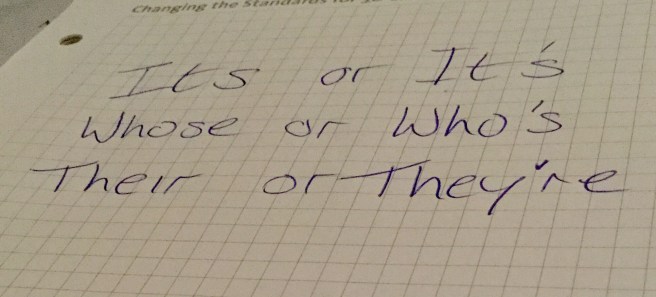 Changing the Standards for
Its or It's
Whose or Who's
Their or They're